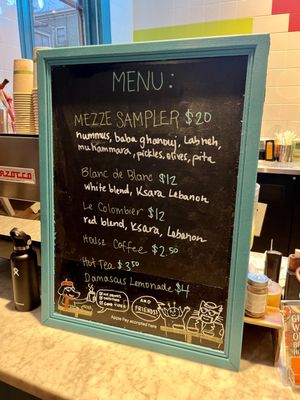 MENU:
MEZZE SAMPLER $20
hummus, baba ghanouj, Labneh,
muhammara, pickles, olives, pita
Blanc de Blanc $12
white blend, Ksara Lebanon
Le Colombier $12
red blend, Ksara, Lebanon
House Coffee $2.50
Hot Tea $3.50
Damascus Lemonade $4
AND
FRIENDS!
Apple Pay accepted here